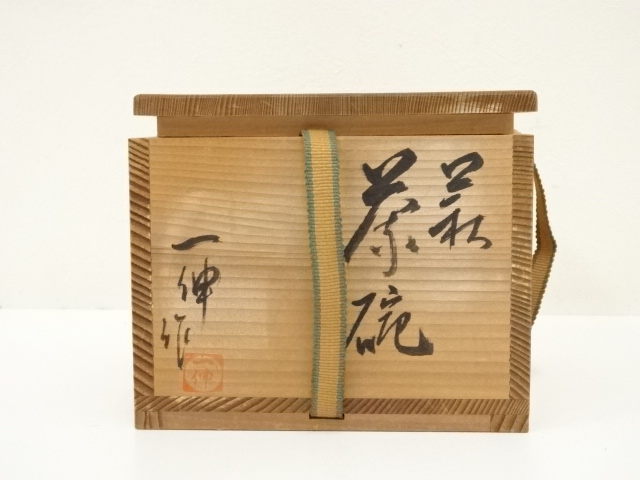 萩
茶碗
一伸作